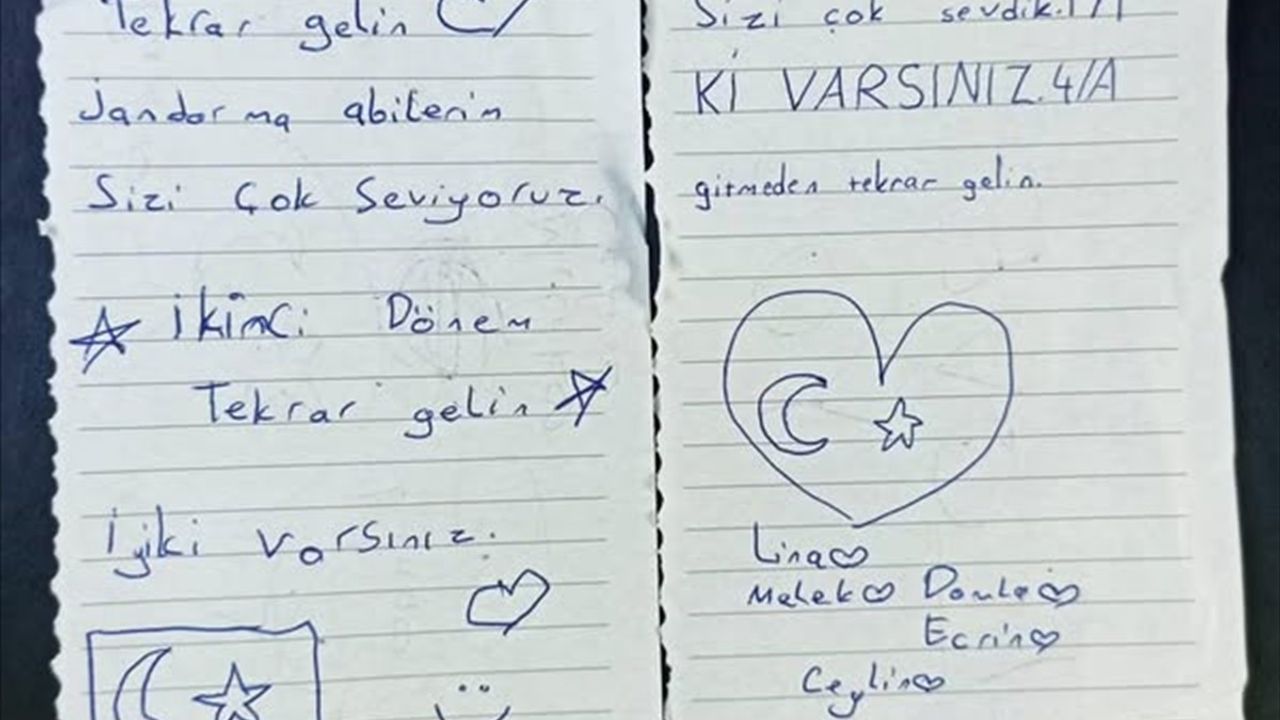 Tekrar gelin
jandorma abilerim
Sizi Çok Seviyoruz.
İkinci Dönem
Tekrar gelin
İyiki varsınız.
Sizi çok sevdik.!/!
Kİ VARSINIZ.4/A
gitmeden tekrar gelin.
Lina
Melek
Ecrin
Ceylin